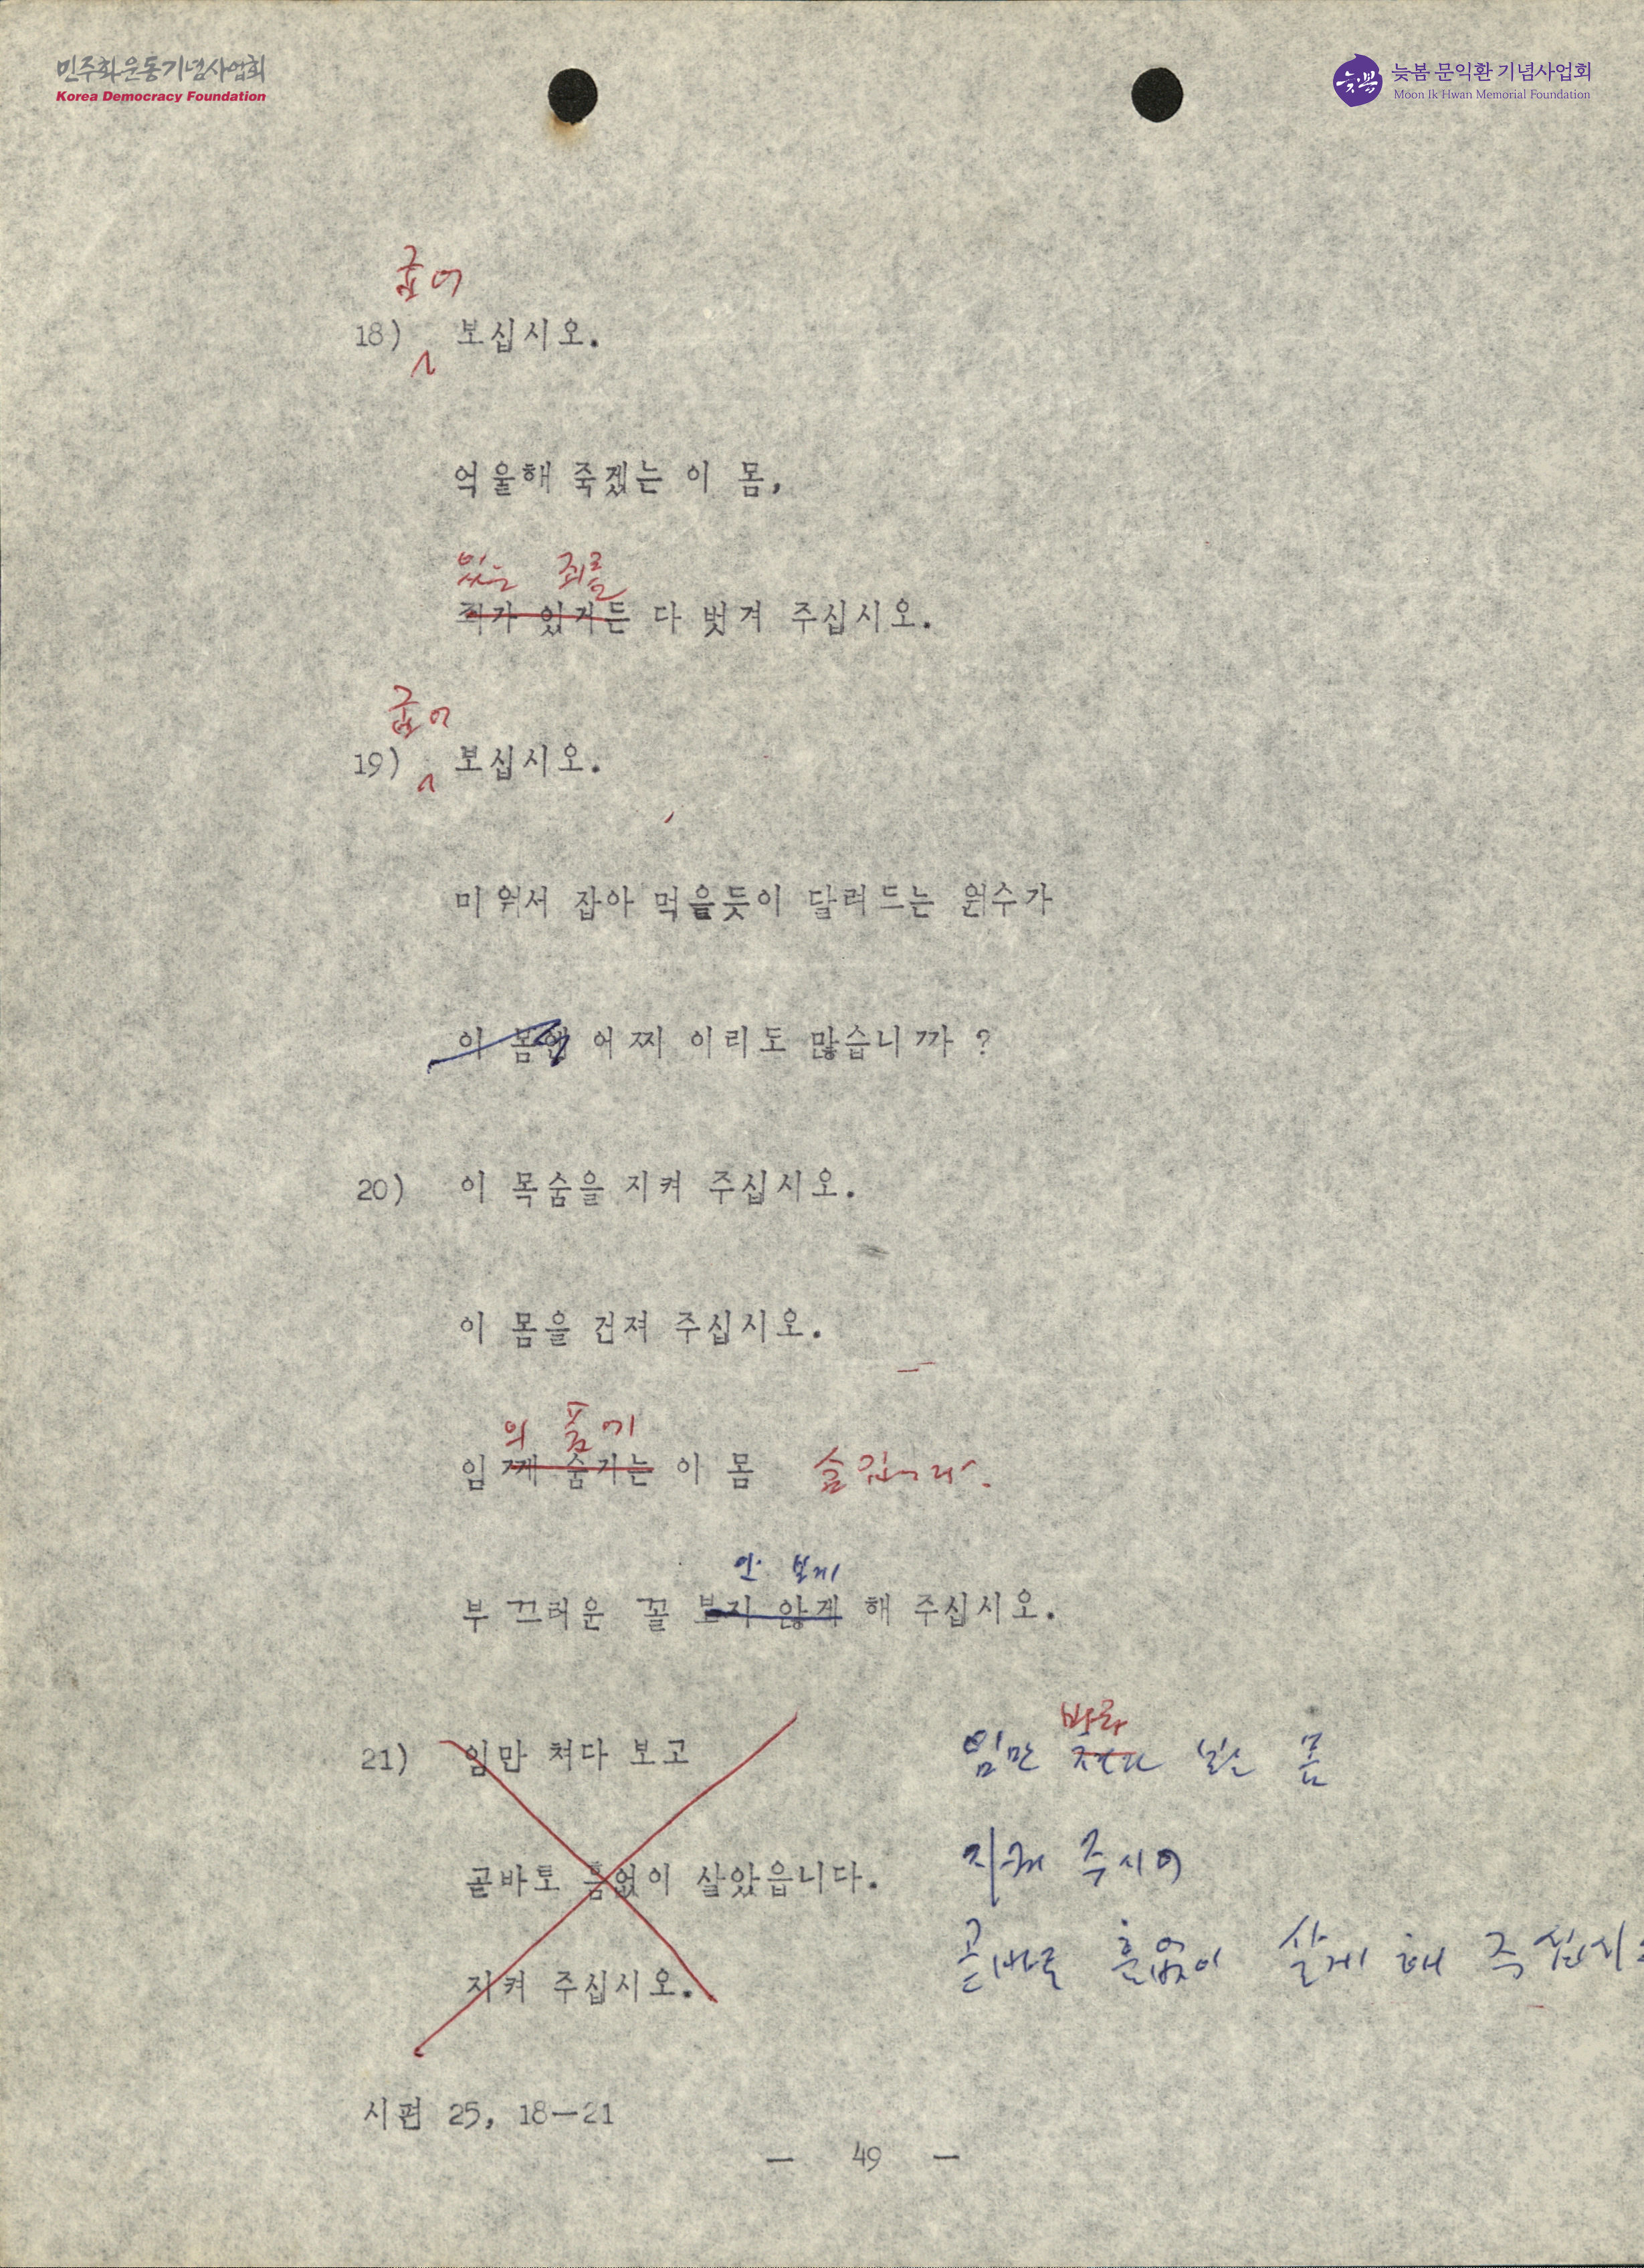 민주화운동기념사업회
Korea Democracy Foundation
늦봄
늦봄 문익환 기념사업회
Moon Ik Hwan Memorial Foundation
굽어
18) 보십시오.
억울해 죽겠는 이 몸,
있는 죄를
죄가 있거든 다 벗겨 주십시오.
굽어
19) 보십시오.
미워서 잡아 먹을듯이 달려드는 원수가
이 몸엔 어찌 이리도 많습니까 ?
20) 이 목숨을 지켜 주십시오.
이 몸을 건져 주십시오.
의 품에
임께 숨기는 이 몸 숨깁니다.
안 보게
부끄러운 꼴 보지 않게 해 주십시오.
바라
21) 임만 쳐다 보고 임만 쳐다 보는 몸
지켜 주시어
곧바로 흠없이 살았읍니다.
곧바로 흠없이 살게 해 주십시
지켜 주십시오.
시편 25, 18—21
— 49 —